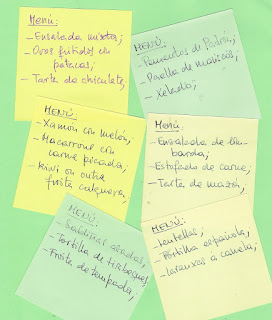 Menú:
- Ensalada mixta;
- Ovos fritidos con
patacas;
- Tarta de chicolate,
MENÚ:
- Pementos de Padrón;
- Paella de mariscos;
- Xelado;
MENÚ:
- Xamón con melón;
- Macarróns con
carne picada;
- Kiwi ou outra
froita calquera;
MENÚ:
- Ensalada de lom-
barda;
- Estofado de carne;
- Tarta de mazá;
MENÚ:
- Sardiñas asadas;
- Tortilla de
- Froita de tempada;
MENÚ:
- Lentellas;
- Tortilla española;
- Laranxas á canela;